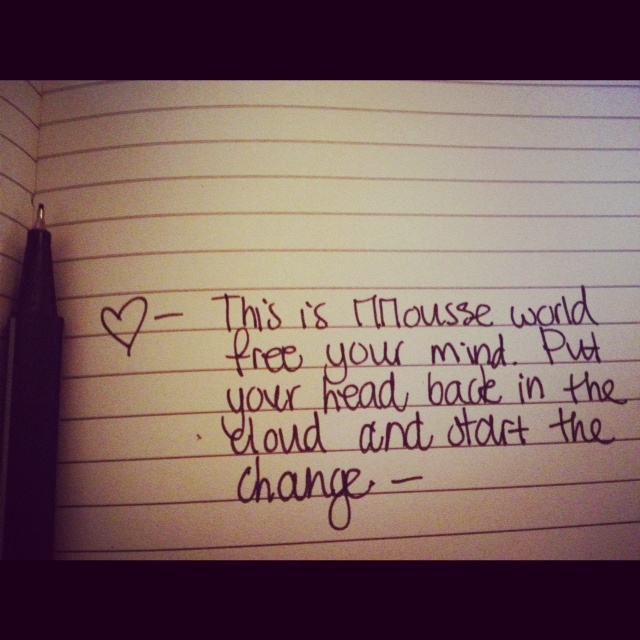 ♡- This is MMousse world
free your mind. Put
your head back in the
cloud and start the
change -